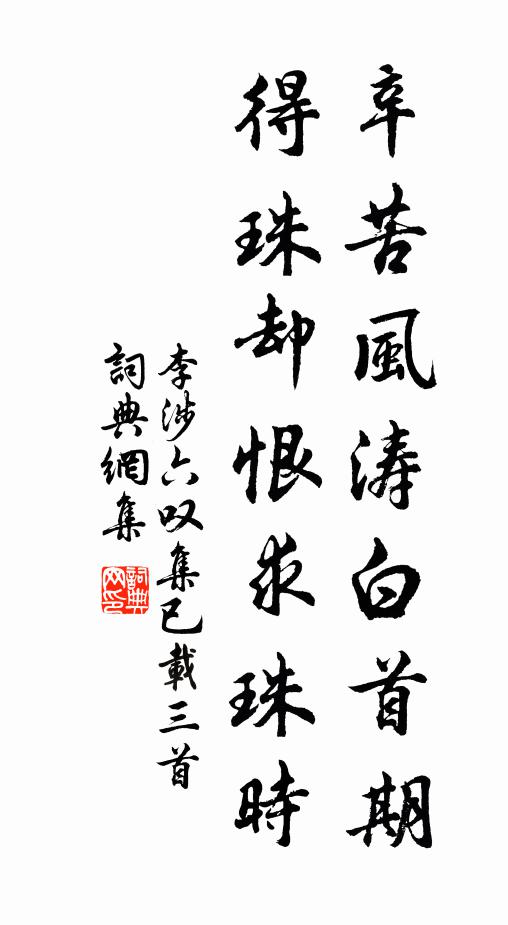 辛苦風涛白首期
得珠却恨求珠時
李涉六叹集已載三首
詞典網集
詞典網印